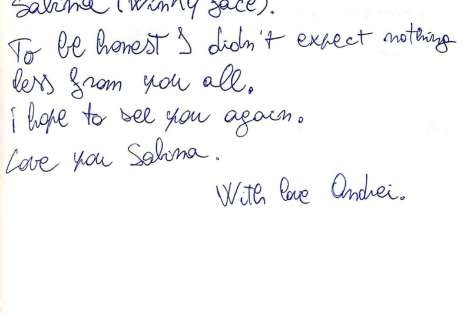 Sabina (Winny face).
To be honest I didn't expect nothing
less from you all.
i hope to see you again.
Love you Sabina.
With love Andrei.